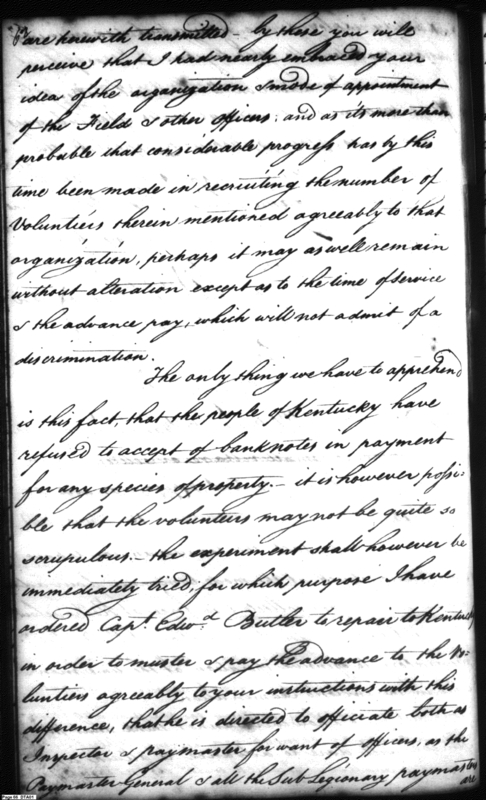 are herewith transmitted – by these you will
perceive that I had nearly embraced your
idea of the organization & mode of appointment
of the Field & other officers, and as its more than
probable that considerable progress has by this
time been made in recruiting the number of
Voluntiers therein mentioned agreeably to that
organization, perhaps it may as well remain
without alteration except as to the time of service
& the advance pay, which will not admit of a
discrimination.
The only thing we have to apprehend
is this fact, that the people of Kentucky have
refused to accept of banknotes in payment
for any species of property. – it is however possi-
ble that the volunteers may not be quite so
scrupulous. – the experiment shall however be
immediately tried, for which purpose I have
ordered Capt. Edwd. Butler to repair to Kentucky
in order to muster & pay the advance to the Vo-
luntiers agreeably to your instructions with this
difference, that he is directed to officiate both as
Inspector & paymaster for want of officers, as the
Paymaster General & all the Sub Legionary paymasters
are